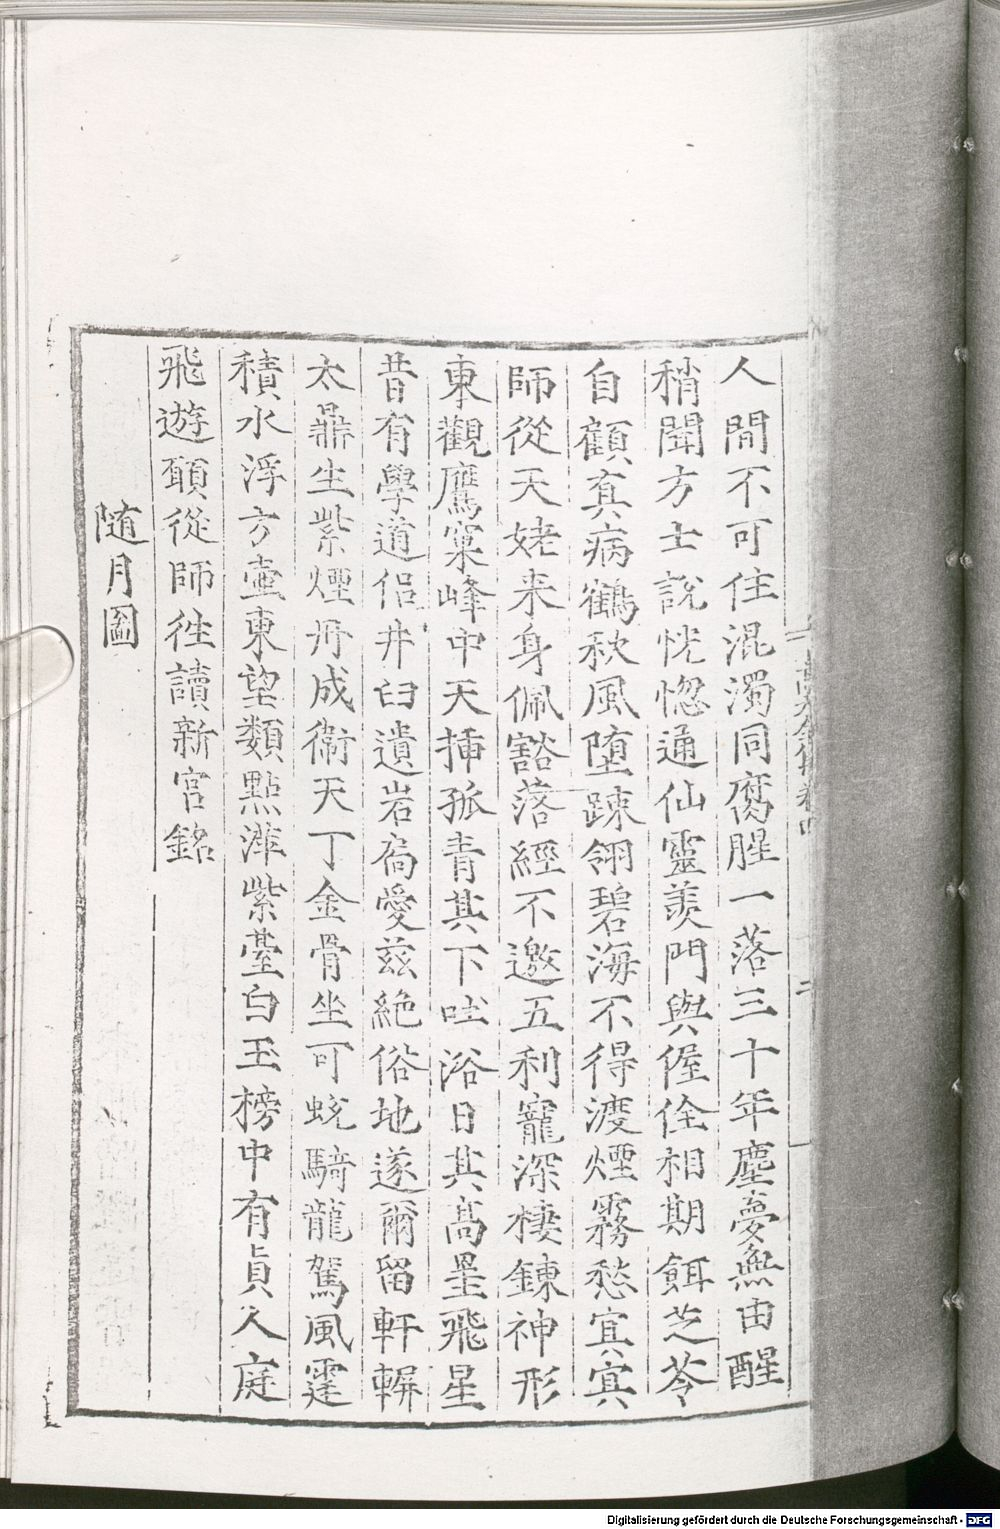 人間不可住混濁同腐腥一落三十年塵夢無由醒
稍聞方士說恍惚通仙靈羨門與偓佺相期餌芝苓
自顧真病鶴秋風墮疎翎碧海不得渡煙霧愁冥冥
師從天姥来身佩豁落經不邀五利寵深棲鍊神形
東觀鷹窠峰中天揷孤青其下吐浴日其高墨飛星
昔有學道侶井臼遺岩扃愛兹絶俗地遂爾留軒輧
太鼎生紫煙丹成衛天丁金骨坐可蛻騎龍駕風霆
積水浮方壺東望類點萍紫臺白玉榜中有貞人庭
飛遊願從師徃讀新宫銘
随月圖
卷四
二
Digitalisierung gefördert durch die Deutsche Forschungsgemeinschaft - DFG